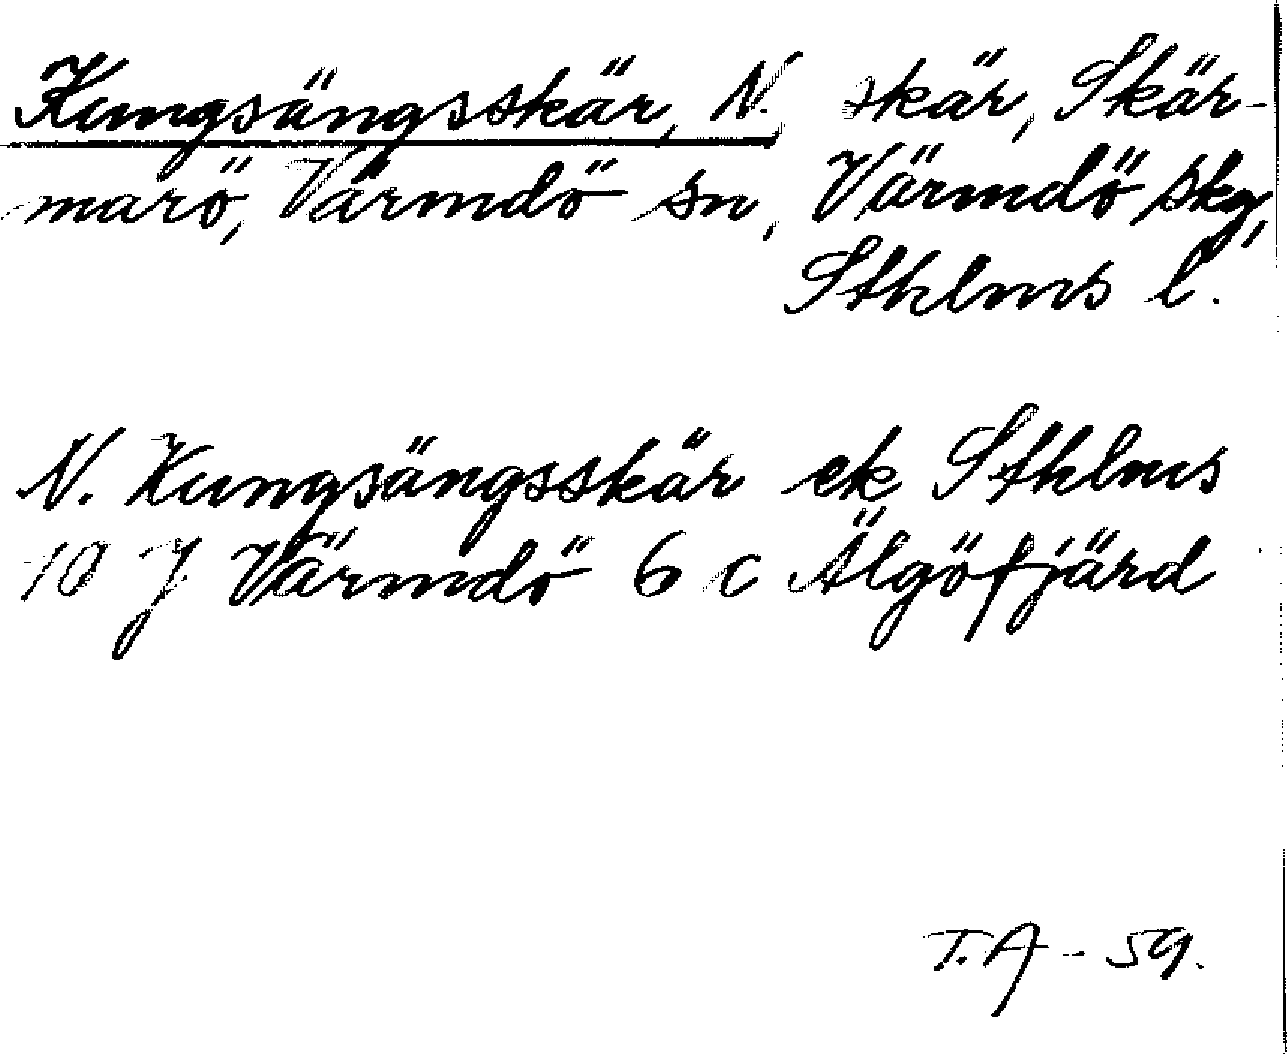 Kungsängsskär, N. skär, Skär-
marö, Värmdö sn, Värmdö skg,
Sthlms l.
N. Kungsängsskär ek Sthlms
10 J Värmdö 6 c Älgöfjärd
T.A - 59.